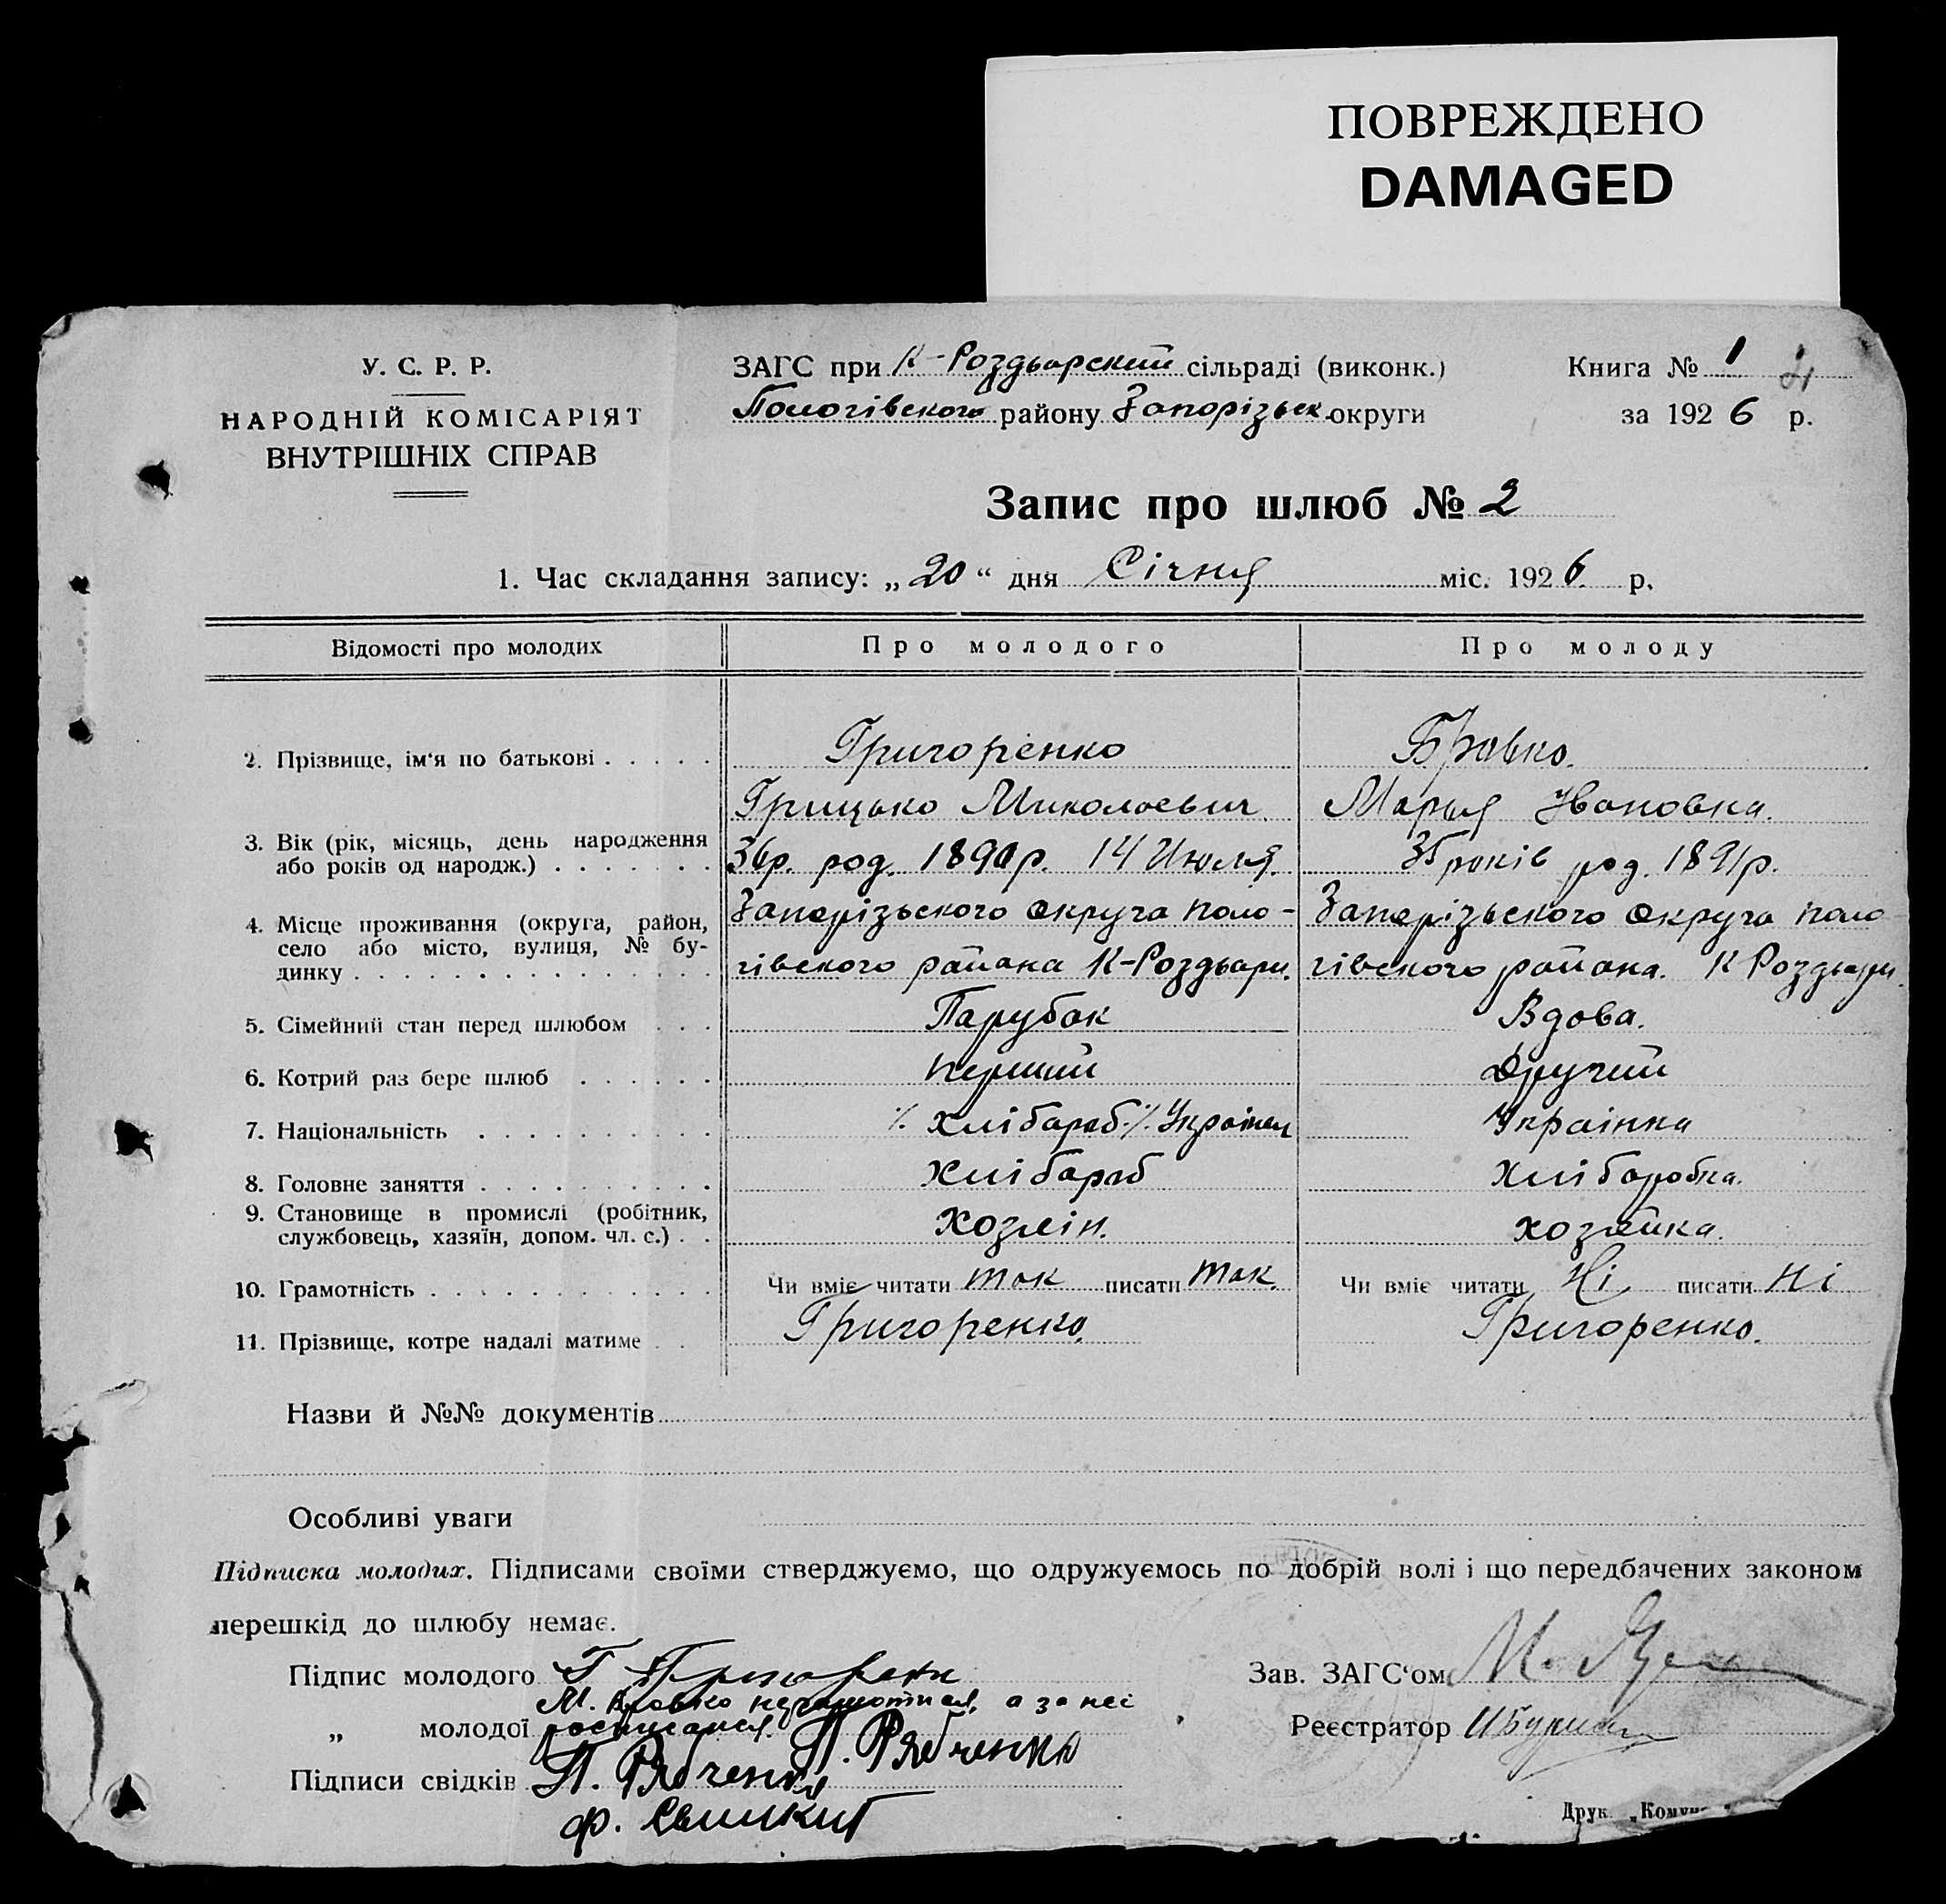 ПОВРЕЖДЕНО
DAMAGED
У. С. Р. Р.
НАРОДНІЙ КОМІСАРІЯТ
ВНУТРІШНІХ СПРАВ
ЗАГС при К-Роздьорский сільраді (виконк.)
Пологівского району Запорізьск округи
Книга № 1
за 1926 р.
Запис про шлюб № 2
1. Час складання запису: „20“ дня Січня міс. 1926 р.
Відомості про молодих Про молодого Про молоду
2. Прізвище, ім‘я по батькові . . . . . Григоренко Бровко.
Грицько Миколаевич. Марья Ивановна.
3. Вік (рік, місяць, день народження
або років од народж.) . . . . . . . 36р. род. 1890р. 14 Июля. 35 років род. 1891р.
4. Місце проживання (округа, район,
село або місто, вулиця, № бу-
динку . . . . . . . . . . . . . . .
Запорізьского округа Поло-
гівского района К-Роздьори.
Запорізьского округа Поло
гівского района. К Роздьори.
5. Сімейний стан перед шлюбом . . . Парубок Вдова.
6. Котрий раз бере шлюб . . . . . . Перший Другий
7. Національність . . . . . . . . . . ٪ Хлібороб ٪ Українец Українка
8. Головне заняття . . . . . . . . . . Хлібороб Хліборобка.
9. Становище в промислі (робітник,
службовець, хазяїн, допом. чл. с.) . . Хозяін. хозяйка.
10. Грамотність . . . . . . . . . . . . Чи вміє читати так писати так. Чи вміє читати Ні писати Ні
11. Прізвище, котре надалі матиме . . Григоренко. Григоренко.
Назви й №№ документів
Особливі уваги
Підписка молодих. Підписами своїми стверджуємо, що одружуємось по добрій волі і що передбачених законом
перешкід до шлюбу немає.
Підпис молодого Г Григорен
М. Бровко неграмотная, а за неї
„ молодої росписался П. Рябченко
Підписи свідків П. Рябченко
Ф.
Зав. ЗАГС‘ом М.
Реєстратор
Друк. „Комун